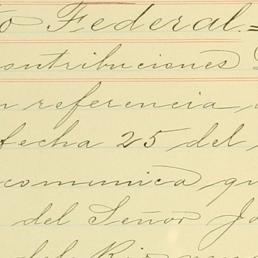 o Federal.=
ontribuciones
n referencia
fecha 25 del
comunica qu
del Señor Jo
del Rio